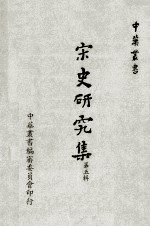 中華叢書
宋史研究集
第五輯
中華叢書編審委員會印行